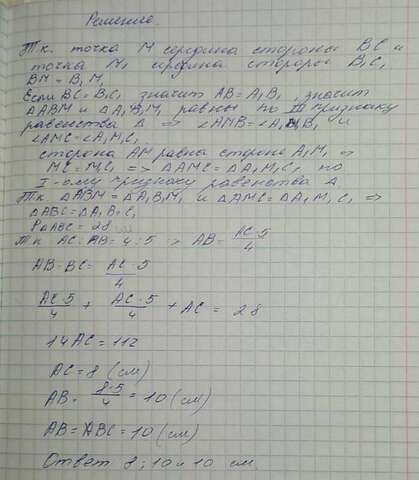 Решение.
Т.к. точка M середина стороны BC и
точка M₁ середина стороны B₁C₁
BM = B₁M₁
Если BC = B₁C₁ значит AB = A₁B₁, значит
ΔABM и ΔA₁B₁M₁ равны по III признаку
равенства Δ => ∠AMB = ∠A₁M₁B₁ и
∠AMC = ∠A₁M₁C₁
сторона AM равна стороне A₁M₁ =>
MC = M₁C₁ => ΔAMC = ΔA₁M₁C₁ по
I-ому признаку равенства Δ
Т.к. ΔABM = ΔA₁B₁M₁ и ΔAMC = ΔA₁M₁C₁ =>
ΔABC = ΔA₁B₁C₁
PΔABC = 28 см
Т.к AC:AB = 4:5 => AB = AC·5/4
AB = BC = AC·5/4
AC·5/4 + AC·5/4 + AC = 28
14AC = 112
AC = 8 (см)
AB = 8·5/4 = 10 (см)
AB = BC = 10 (см)
Ответ 8; 10 и 10 см.